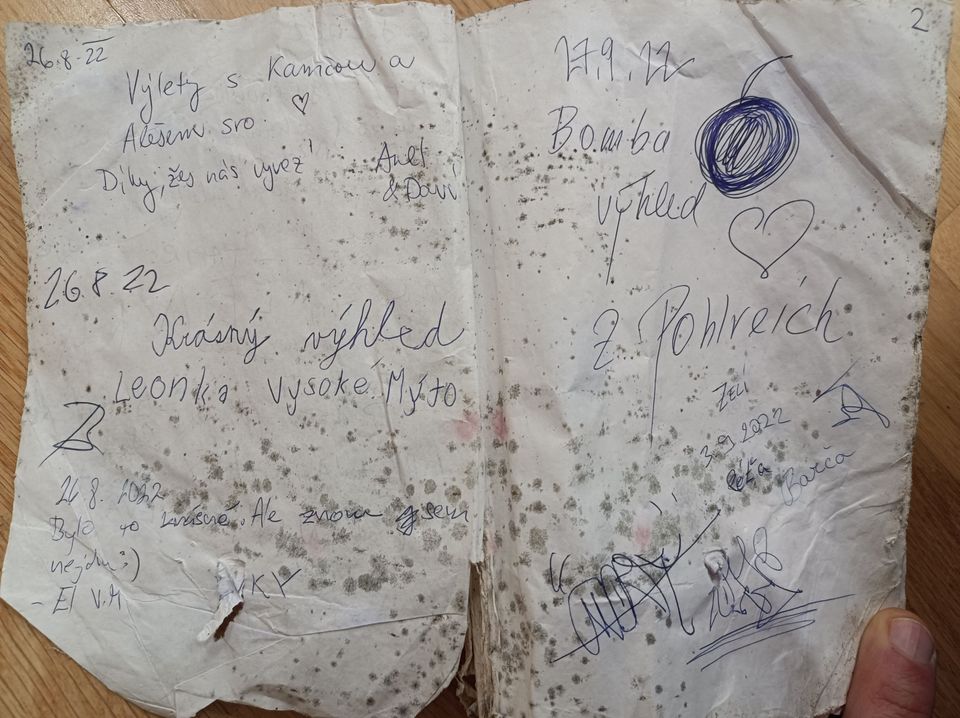 26.8.22
Výlety s Kamčou a
Alešem sro
Díky, žes nás vyvez'
& Daví
26.8.22
Krásný výhled
Leonka Vysoké Mýto
26.8. 2022
Bylo to krásné. Ale znova sem
nejdu :)
- El V.M
2
17.9.22
Bomba
výhled
Z. Pohlreich
Zeli
3.9.2022
Péťa
Barča